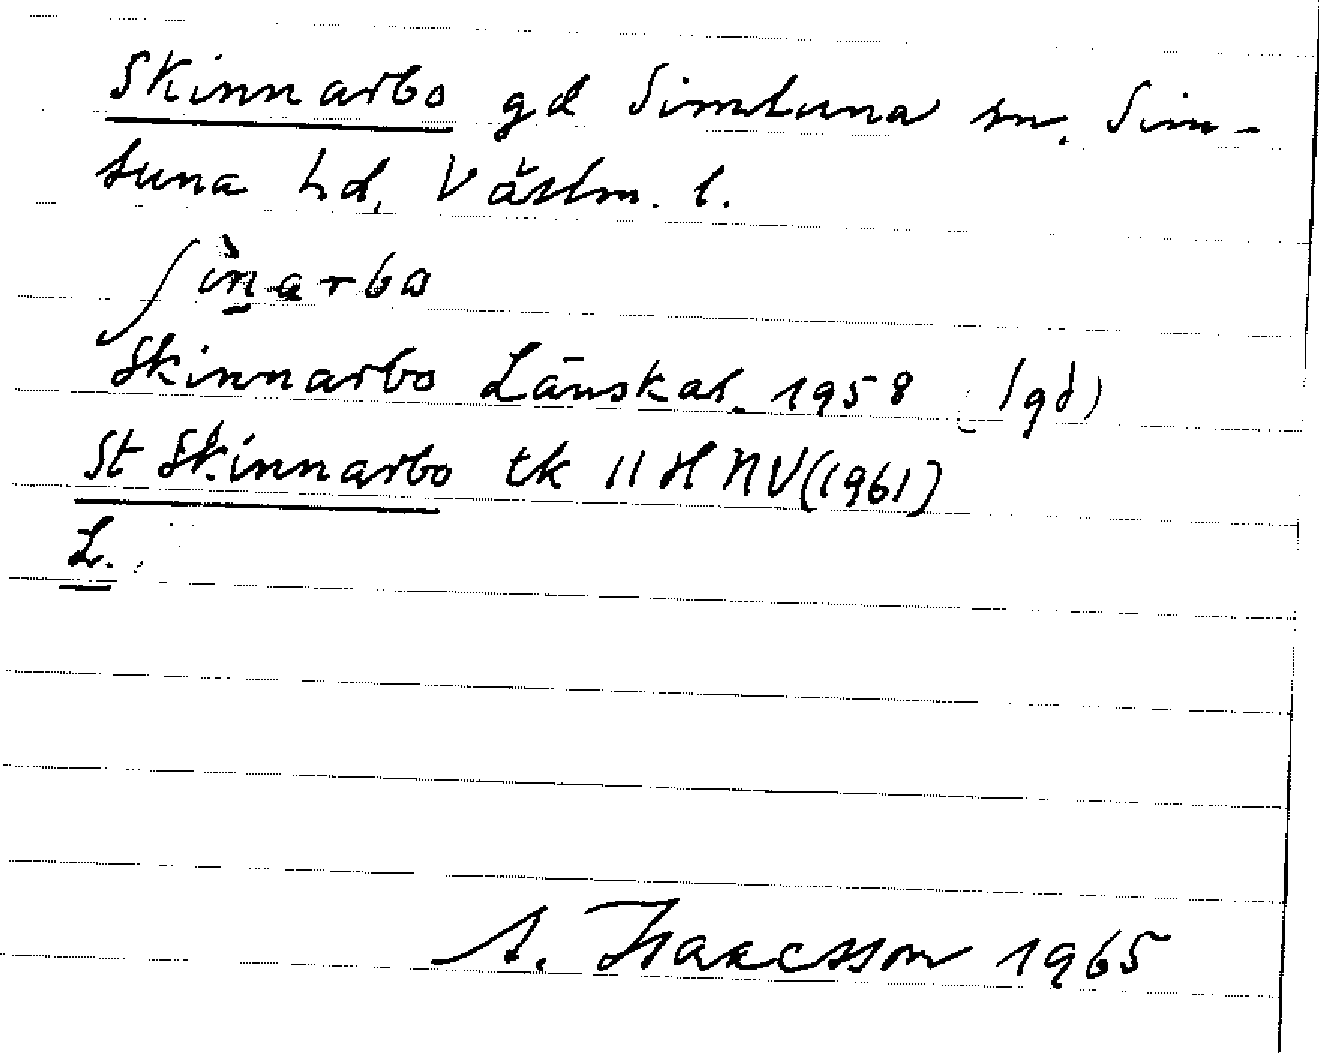 Skinnarbo gd Simtuna sn. Sim-
tuna hd, Västm. l.
ʃìn̠a̠rbo
Skinnarbo Länskal. 1958 (gd)
St Skinnarbo tk 11 H NV (1961)
L.
A. Isaacsson 1965